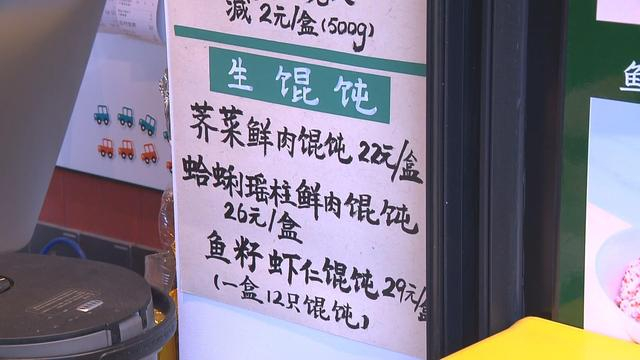 减2元/盒(500g)
生馄饨
荠菜鲜肉馄饨22元/盒
蛤蜊瑶柱鲜肉馄饨
26元/盒
鱼籽虾仁馄饨29元/盒
(一盒12只馄饨)
鱼